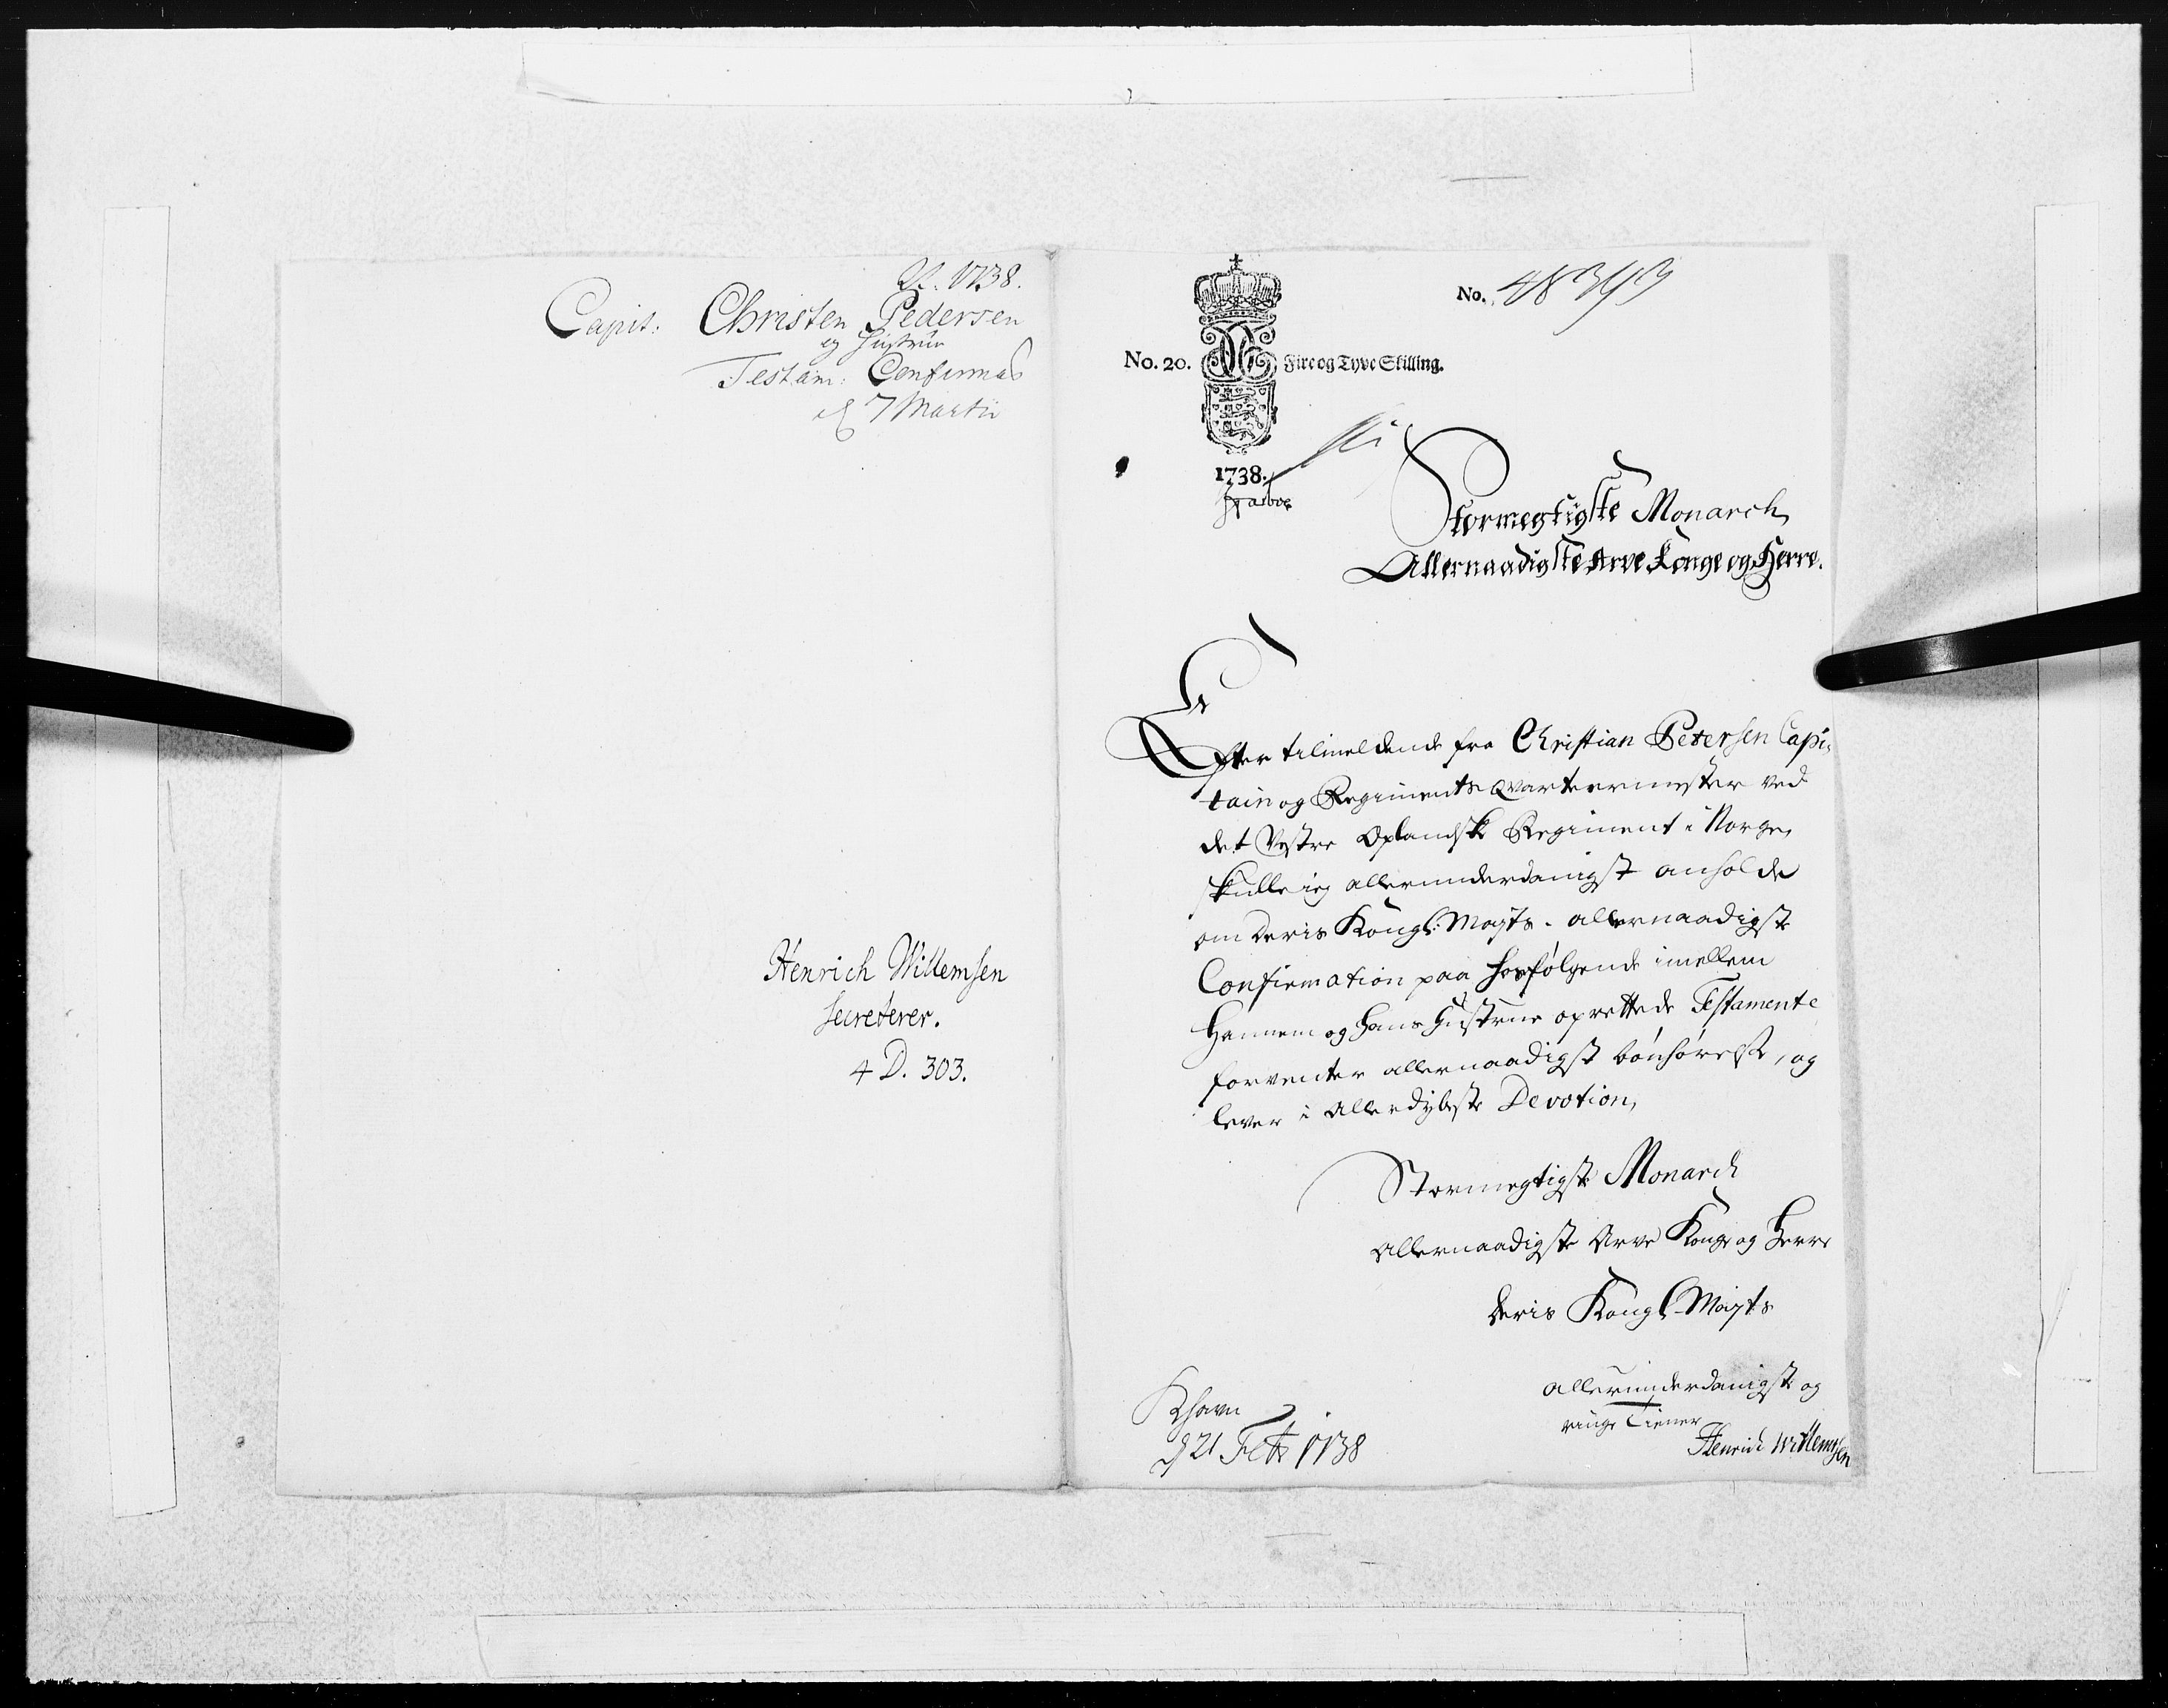 1738.
Capit: Christen Pedersen
og Hustrue
Testam: Confirmas
d 7 Martii
Henrich Willemsen
Secreterer.
4 D. 303.
No. 48393
No. 20. Fire og Tyve Skilling.
1738.
Stormegtigste Monarch
Allernaadigste Arve Konge og Herre.
Efter tilmeldende fra Christian Petersen Capi-
tain og Regiments Qvarteermester ved
det Vestre Oplandske Regiment i Norge,
skulle ieg allerunderdanigst anholde
om Deris Kongl: Mayts. allernaadigste
Confirmation paa hosfølgende imellem
Hannem og Hans Hustrue oprettede Testamente
forventer allernaadigst bønhørelse, og
lever i Allerdybeste Devotion,
Stormegtigste Monarch
Allernaadigste Arve Konge og Herre
Deris Kongl. Mayts
Allerunderdanigste og
ringe Tiener
Henrich Willemsen
Khavn
d 21 Febr 1738